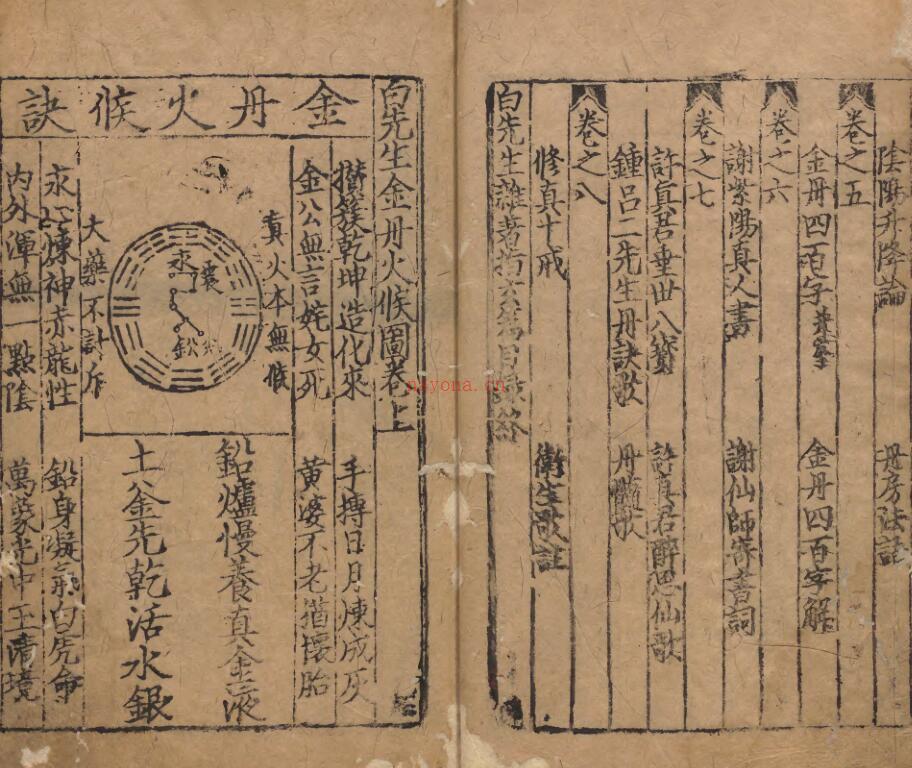 陰陽升降論 丹房法語
卷之五
金丹四百字 金丹四百字解
卷之六
謝紫陽真人書 謝仙師寄書詞
卷之七
許真君垂世八寶 許真君醉思仙歌
鍾呂二先生丹訣歌 丹髓歌
卷之八
修真十戒 衛生歌註
白先生雜著指玄篇目錄終
白先生金丹火候圖卷上
金丹火候訣
攢簇乾坤造化來 手摶日月煉成灰
金公無言姹女死 黃婆不老猶懷胎
真火本無候
大藥不計斤
鉛爐慢養真金液
土釜先乾活水銀
煉神赤龍性 鉛身凝氣白虎命
內外渾無一點陰 萬象光中玉清境
nayona.cn